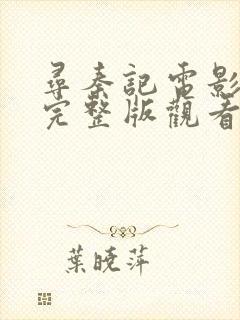 尋秦記電影
完整版觀看
葉曉萍